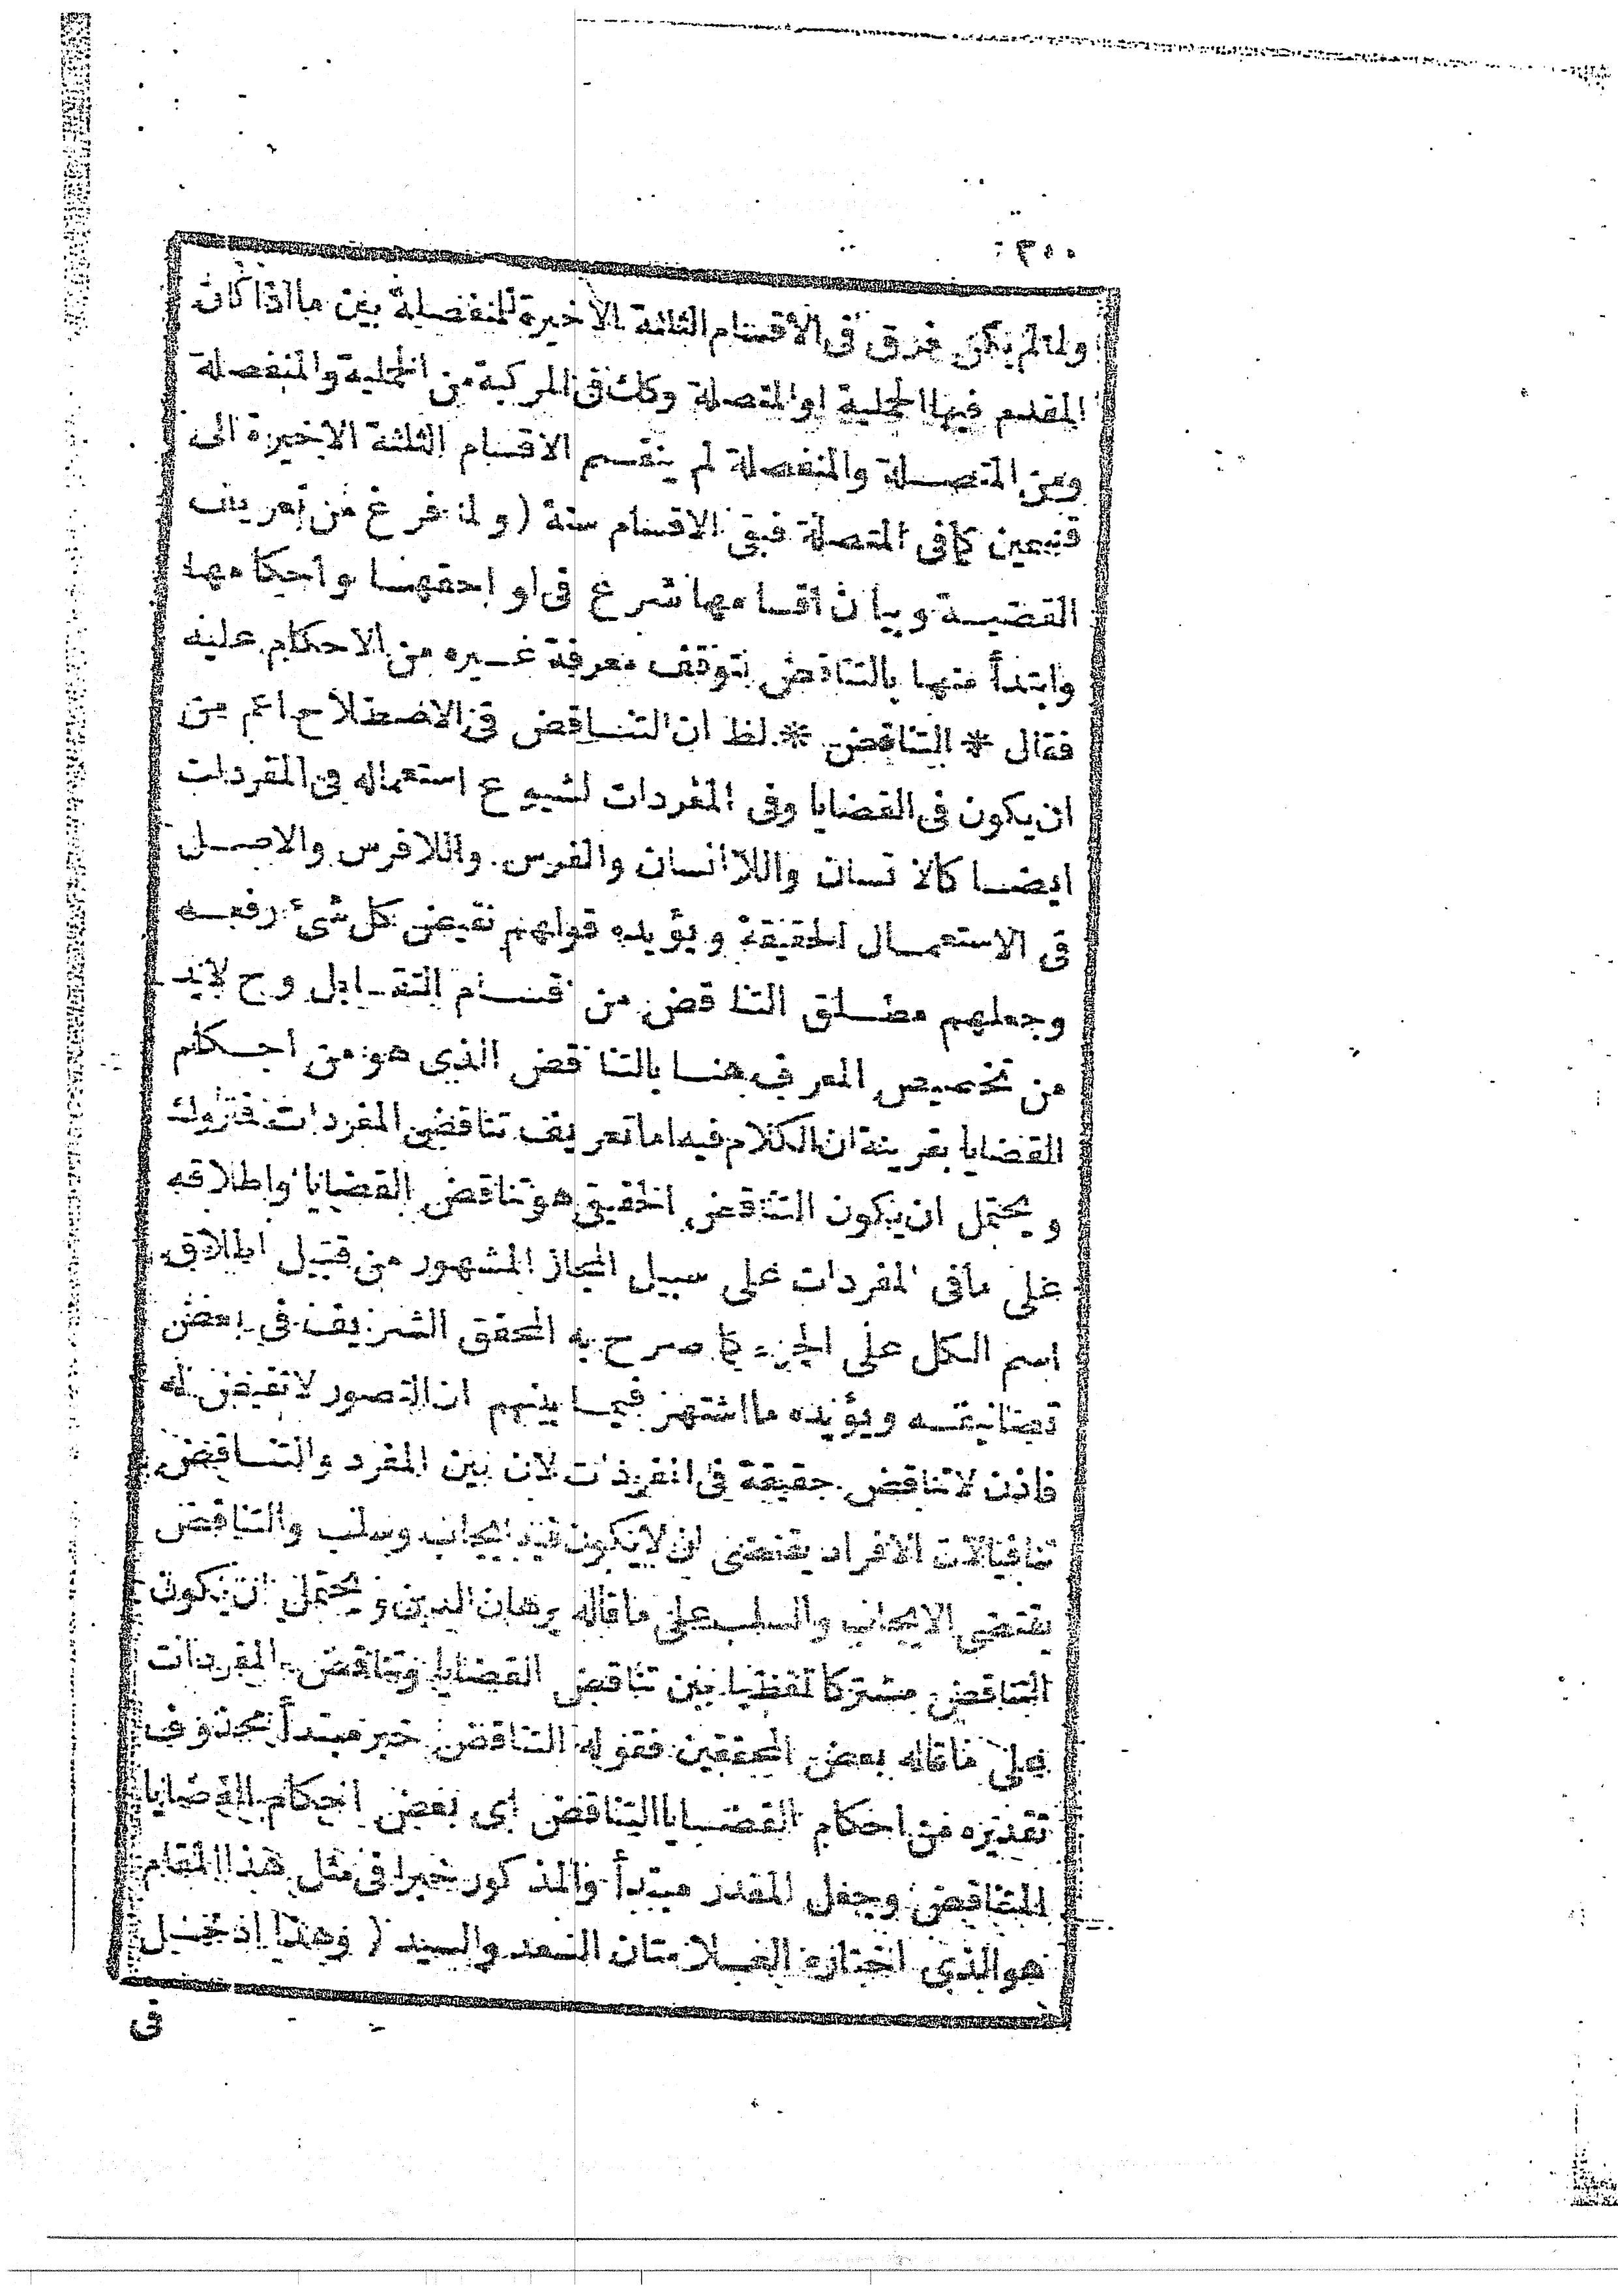 ٣٥٥
ولما لم يكن فرق فى الاقسام الثلثة الاخيرة للمنفصلة بين ما اذا كان
المقدم فيها الحملية او المتصلة وكك فى المركبة من الحملية والمنفصلة
ومن المتصلة والمنفصلة لم ينقسم الاقسام الثلثة الاخيرة الى
قسمين كما فى المتصلة فبقى الاقسام ستة ( ولما فرغ من تعريف
القضية وبيان اقسامها شرع فى لواحقها واحكامها
وابتدأ منها بالتناقض لتوقف معرفة غيره من الاحكام عليه
فقال * التناقض * لظ ان التناقض فى الاصطلاح اعم من
ان يكون فى القضايا وفى المفردات لشيوع استعماله فى المفردات
ايضا كالانسان واللاانسان والفرس واللافرس والاصل
فى الاستعمال الحقيقة ويؤيده قولهم نقيض كل شئ رفعه
وجعلهم مطلق التناقض من اقسام التقابل وح لابد
من تخصيص المعرف هنا بالتناقض الذى هو من احكام
القضايا بقرينة ان الكلام فيه اما تعريف تناقض المفردات فمتروك
ويحتمل ان يكون التناقض الحقيقى هو تناقض القضايا واطلاقه
على ما فى المفردات على سبيل المجاز المشهور من قبيل اطلاق
اسم الكل على الجزء كما صرح به المحقق الشريف فى بعض
تصانيفه ويؤيده ما اشتهر فيما بينهم ان التصور لا نقيض له
فاذن لا تناقض حقيقة فى المفردات لان بين المفرد والتناقض
تنافيا لان الافراد يقتضى ان لا يكون فيه ايجاب وسلب والتناقض
يقتضى الايجاب والسلب على ما قاله برهان الدين ويحتمل ان يكون
التناقض مشتركا لفظيا بين تناقض القضايا وتناقض المفردات
على ما قاله بعض المحققين فقوله التناقض خبر مبتدأ محذوف
تقديره من احكام القضايا التناقض اى بعض احكام القضايا
التناقض وجعل المقدر مبتدأ والمذكور خبرا فى مثل هذا المقام
هو الذى اختاره العلامتان السعد والسيد ( وهذا ادخل
فى